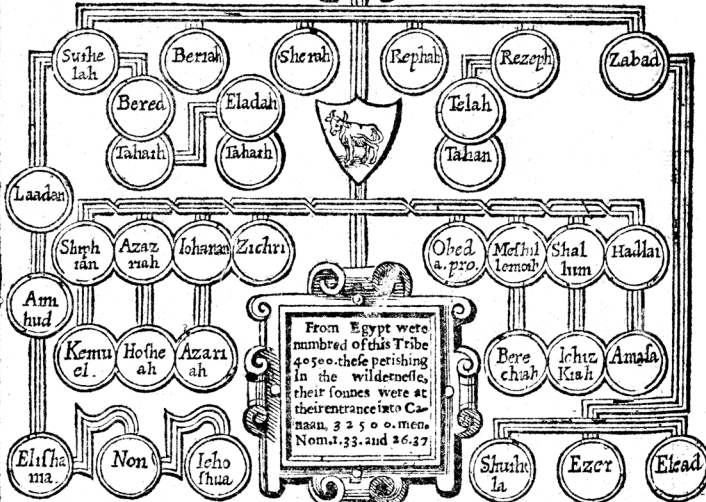 Suthe
lah
Beriah
Sherah
Rephah
Rezeph
Zabad
Bered
Eladah
Telah
Tahath
Tahath
Tahan
Laadan
Shiph
tan
Azaz
riah
Iohanan
Zichri
Obed
a.pro.
Meshil
lemoth
Shal
lum
Hadlai
Am
hud
Kemu
el.
Hoshe
ah
Azari
ah
Bere
chiah
Iehiz
Kiah
Amasa
From Egypt were
numbred of this Tribe
40500. these perishing
in the wildernesse,
their sonnes were at
their entrance into Ca-
naan, 32500. men.
Nom.1.33. and 26.37
Elisha
ma.
Non
Ieho
shua
Shuthe
la
Ezer
Elead